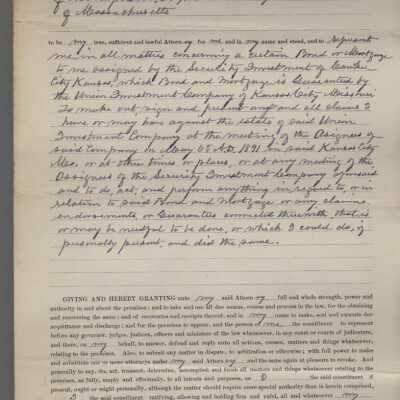 of Massachusetts
to be my true, sufficient and lawful Attorney for me, and in my name and stead, and to represent
me, in all matters concerning a certain Bond or Mortgage
to me assigned by the Security Investment of
City Kansas, which Bond and Mortgage is Guaranteed by
the Union Investment Company of Kansas City Missouri
To make out, sign and present any and all claims I
have or may have against the estate of said Union
Investment Company at the meeting of the Assignee of
said Company on May A.D. 1891 in said Kansas City
Mo. or at other times or places, or at any meeting of the
Assignees of the Security Investment Company aforesaid
and to do, act, and perform anything in regard to, or in
relation to said Bond and Mortgage or any claims
endorsements, or Guarantees connected therewith, that is
or may be needful to be done, or which I could do, if
personally present, and did the same.
GIVING AND HEREBY GRANTING unto my said Attorney full and whole strength, power and
authority in and about the premises; and to take and use all due means, course and process in the law, for the obtaining
and recovering the same; and of recoveries and receipts thereof, and in my name to make, seal and execute due
acquittance and discharge; and for the premises to appear, and the person of me the constituent to represent
before any governor, judges, justices, officers and ministers of the law whatsoever, in any court or courts of judicature,
and there, on my behalf, to answer, defend and reply unto all actions, causes, matters and things whatsoever,
relating to the premises. Also, to submit any matter in dispute, to arbitration or otherwise; with full power to make
and substitute one or more attorneys under my said Attorney and the same again at pleasure to revoke. And
generally to say, do, act, transact, determine, accomplish and finish all matters and things whatsoever relating to the
premises, as fully, amply and effectually, to all intents and purposes, as I the said constituent if
present, ought or might personally, although the matter should require more special authority than is herein comprised,
I the said constituent ratifying, allowing and holding firm and valid, all and whatsoever my